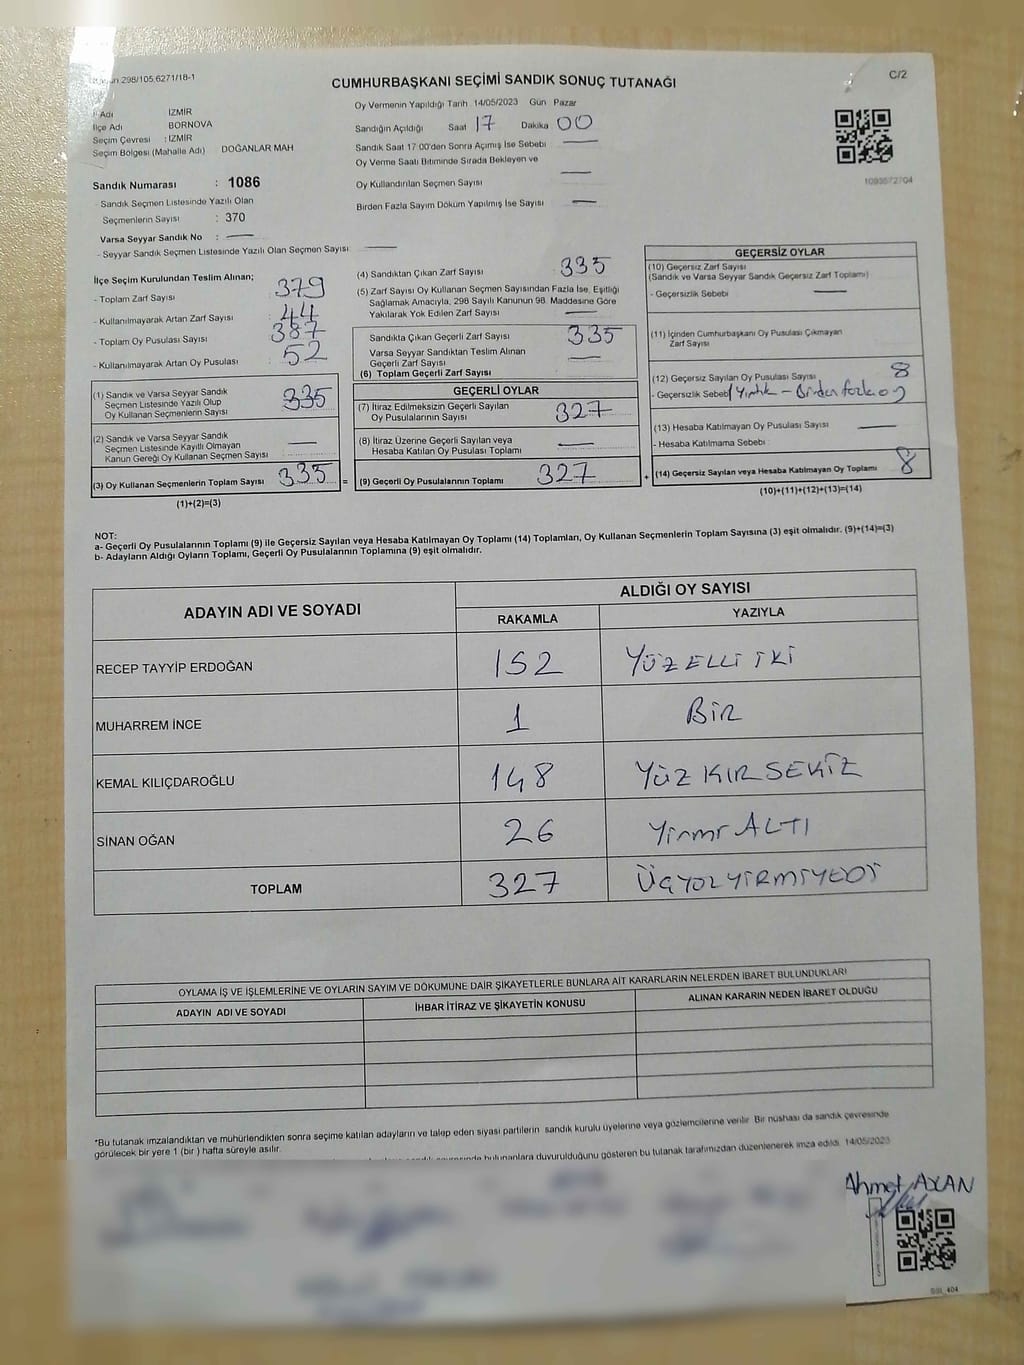 298/105,6271/18-1
CUMHURBAŞKANI SEÇİMİ SANDIK SONUÇ TUTANAĞI
C/2
İl Adı İZMİR
İlçe Adı BORNOVA
Seçim Çevresi : İZMİR
Seçim Bölgesi (Mahalle Adı) DOĞANLAR MAH
Oy Vermenin Yapıldığı Tarih 14/05/2023 Gün Pazar
Sandığın Açıldığı Saat 17 Dakika 00
Sandık Saat 17:00'den Sonra Açımış İse Sebebi
Oy Verme Saati Bitiminde Sırada Bekleyen ve
Oy Kullandırılan Seçmen Sayısı
Birden Fazla Sayım Döküm Yapılmış İse Sayısı
1093572704
Sandık Numarası : 1086
- Sandık Seçmen Listesinde Yazılı Olan
Seçmenlerin Sayısı : 370
Varsa Seyyar Sandık No :
- Seyyar Sandık Seçmen Listesinde Yazılı Olan Seçmen Sayısı
İlçe Seçim Kurulundan Teslim Alınan;
- Toplam Zarf Sayısı 379
- Kullanılmayarak Artan Zarf Sayısı : 44
- Toplam Oy Pusulası Sayısı 387
- Kullanılmayarak Artan Oy Pusulası : 52
(1) Sandık ve Varsa Seyyar Sandık
Seçmen Listesinde Yazılı Olup
Oy Kullanan Seçmenlerin Sayısı 335
(2) Sandık ve Varsa Seyyar Sandık
Seçmen Listesinde Kayıtlı Olmayan
Kanun Gereği Oy Kullanan Seçmen Sayısı
(3) Oy Kullanan Seçmenlerin Toplam Sayısı 335 =
(1)+(2)=(3)
(4) Sandıktan Çıkan Zarf Sayısı 335
(5) Zarf Sayısı Oy Kullanan Seçmen Sayısından Fazla İse, Eşitliği
Sağlamak Amacıyla, 298 Sayılı Kanunun 98. Maddesine Göre
Yakılarak Yok Edilen Zarf Sayısı
Sandıkta Çıkan Geçerli Zarf Sayısı 335
Varsa Seyyar Sandıktan Teslim Alınan
Geçerli Zarf Sayısı
(6) Toplam Geçerli Zarf Sayısı
GEÇERLİ OYLAR
(7) İtiraz Edilmeksizin Geçerli Sayılan
Oy Pusulalarının Sayısı 327
(8) İtiraz Üzerine Geçerli Sayılan veya
Hesaba Katılan Oy Pusulası Toplamı
(9) Geçerli Oy Pusulalarının Toplamı 327 +
GEÇERSİZ OYLAR
(10) Geçersiz Zarf Sayısı
(Sandık ve Varsa Seyyar Sandık Geçersiz Zarf Toplamı)
- Geçersizlik Sebebi
(11) İçinden Cumhurbaşkanı Oy Pusulası Çıkmayan
Zarf Sayısı
(12) Geçersiz Sayılan Oy Pusulası Sayısı 8
- Geçersizlik Sebebi Yırtık - Birden fazla oy
(13) Hesaba Katılmayan Oy Pusulası Sayısı
- Hesaba Katılmama Sebebi
(14) Geçersiz Sayılan veya Hesaba Katılmayan Oy Toplamı 8
(10)+(11)+(12)+(13)=(14)
NOT:
a- Geçerli Oy Pusulalarının Toplamı (9) ile Geçersiz Sayılan veya Hesaba Katılmayan Oy Toplamı (14) Toplamları, Oy Kullanan Seçmenlerin Toplam Sayısına (3) eşit olmalıdır. (9)+(14)=(3)
b- Adayların Aldığı Oyların Toplamı, Geçerli Oy Pusulalarının Toplamına (9) eşit olmalıdır.
ADAYIN ADI VE SOYADI ALDIĞI OY SAYISI
RAKAMLA YAZIYLA
RECEP TAYYİP ERDOĞAN 152 YÜZ ELLİ İKİ
MUHARREM İNCE 1 BİR
KEMAL KILIÇDAROĞLU 148 YÜZ KIR SEKİZ
SİNAN OĞAN 26 Yirmi ALTI
TOPLAM 327 ÜÇYÜZYİRMİYEDİ
OYLAMA İŞ VE İŞLEMLERİNE VE OYLARIN SAYIM VE DÖKÜMÜNE DAİR ŞİKAYETLERLE BUNLARA AİT KARARLARIN NELERDEN İBARET BULUNDUKLARI
ADAYIN ADI VE SOYADI İHBAR İTİRAZ VE ŞİKAYETİN KONUSU ALINAN KARARIN NEDEN İBARET OLDUĞU
*Bu tutanak imzalandıktan ve mühürlendikten sonra seçime katılan adayların ve talep eden siyasi partilerin sandık kurulu üyelerine veya gözlemcilerine verilir. Bir nüshası da sandık çevresinde
görülecek bir yere 1 (bir) hafta süreyle asılır.
bulunanlara duyurulduğunu gösteren bu tutanak tarafımızdan düzenlenerek imza edildi. 14/05/2023
Ahmet AXAN